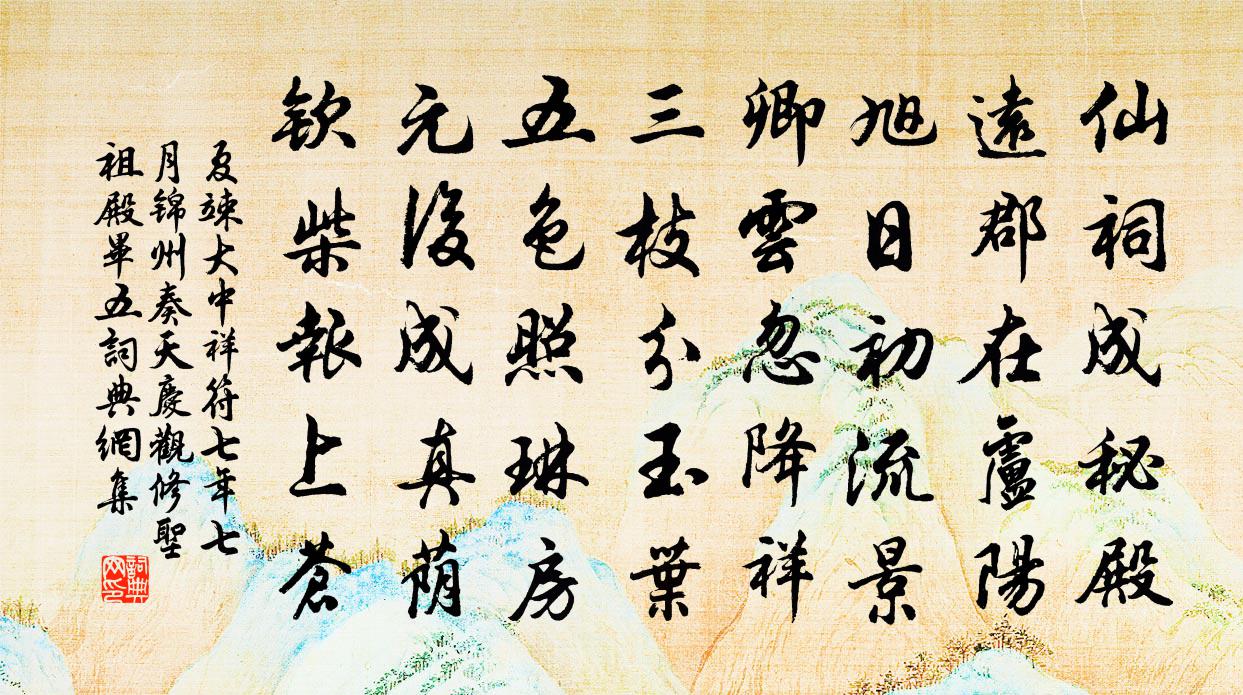 仙祠成秘殿
遠郡在盧陽
旭日初流景
卿雲忽降祥
三枝分玉葉
五色照琳房
元後成真荫
欽柴報上蒼
夏竦大中祥符七年七
月錦州奏天慶觀修聖
祖殿畢五詞典網集
詞典网印